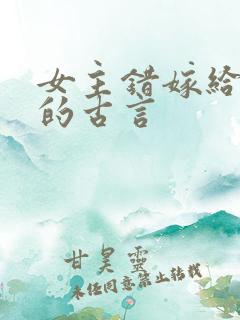 女主错嫁给
的古言
甘昊灵
未经同意禁止转载